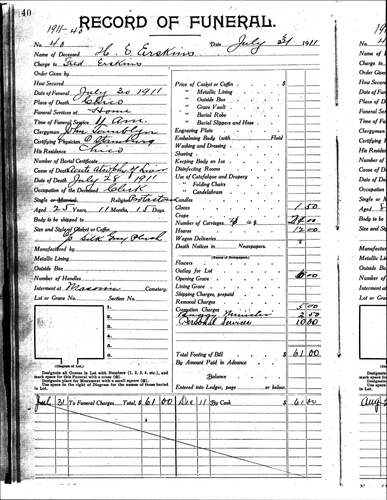 40
1911-40
RECORD OF FUNERAL.
No. 40 Date July 1911
Name of Deceased H. E. Erskins
Charge to Fred Erskins
Order Given by
How Secured
Date of Funeral July 30 1911
Place of Death Chico
Funeral Services at Home
Time of Funeral Service 11 Am.
Clergyman John
Certifying Physician
His Residence Chico
Number of Burial Certificate
Cause of Death Acute of Liver
Date of Death July 28 1911
Occupation of the Deceased Clerk
Single or Married Religion Protestant
Aged 25 Years, 11 Months, 15 Days
Body to be shipped to
Size and Style of Casket or Coffin
Silk Grey Plush
Manufactured by
Metallic Lining
Outside Box
Lot or Grave No. Section No.
Interment at Masonic Cemetery.
1.
2.
3.
4.
5.
(Diagram of Lot.)
Designate all Graves in Lot with Numbers (1, 2, 3, 4, etc.), and mark space for this Funeral with a cross
Designate place for Monument with a small square
Use space to the right of Diagram for the names of those buried in Lot.
Price of Casket or Coffin $
" Metallic Lining
" Outside Box
" Grave Vault
" Burial Robe
" Burial Slippers and Hose
Engraving Plate
Embalming Body (with Fluid
Washing and Dressing
Shaving
Keeping Body on Ice
Disinfecting Rooms
Use of Catafalque and Drapery
" Folding Chairs
" Candelabrum
Candles
Gloves 1 50
Crape
Number of Carriages 4 @
Hearse 12 00
Wagon Deliveries
Death Notices in Newspapers.
(Names of Newspapers)
Flowers
Outlay for Lot
Opening Grave
Lining Grave
Shipping Charges, prepaid
Removal Charges
Cremation Charges 5 00
Buggy Minister 2 50
Personal Service
Total Footing of Bill $ 61 00
By Amount Paid in Advance
Balance
Entered into Ledger, page or below.
July 31 To Funeral Charges Total, $ 61 00 Dec 11 By Cash $ 61 00
Aug